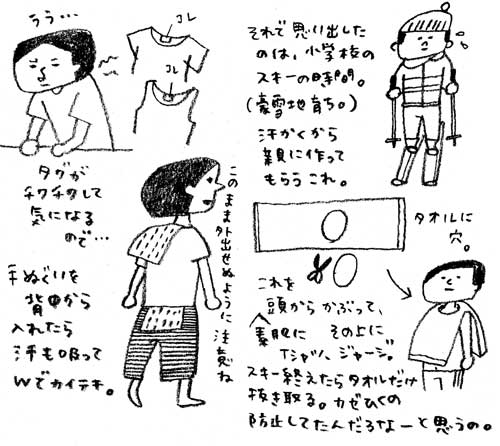 うう…
コレ
コレ
タグが
チクチクして
気になる
ので…
手ぬぐいを
背中から
入れたら
汗も吸って
Wでカイテキ。
このまま外出せぬように注意ね
それで思い出した
のは、小学校の
スキーの時間。
(豪雪地育ち。)
汗かくから
親に作って
もらうこれ。
タオルに
穴。
これを
頭からかぶって、
素肌に その上に
Tシャツ、ジャージ。
スキー終えたらタオルだけ
抜き取る。カゼひくの
防止してたんだろなーと思うの。